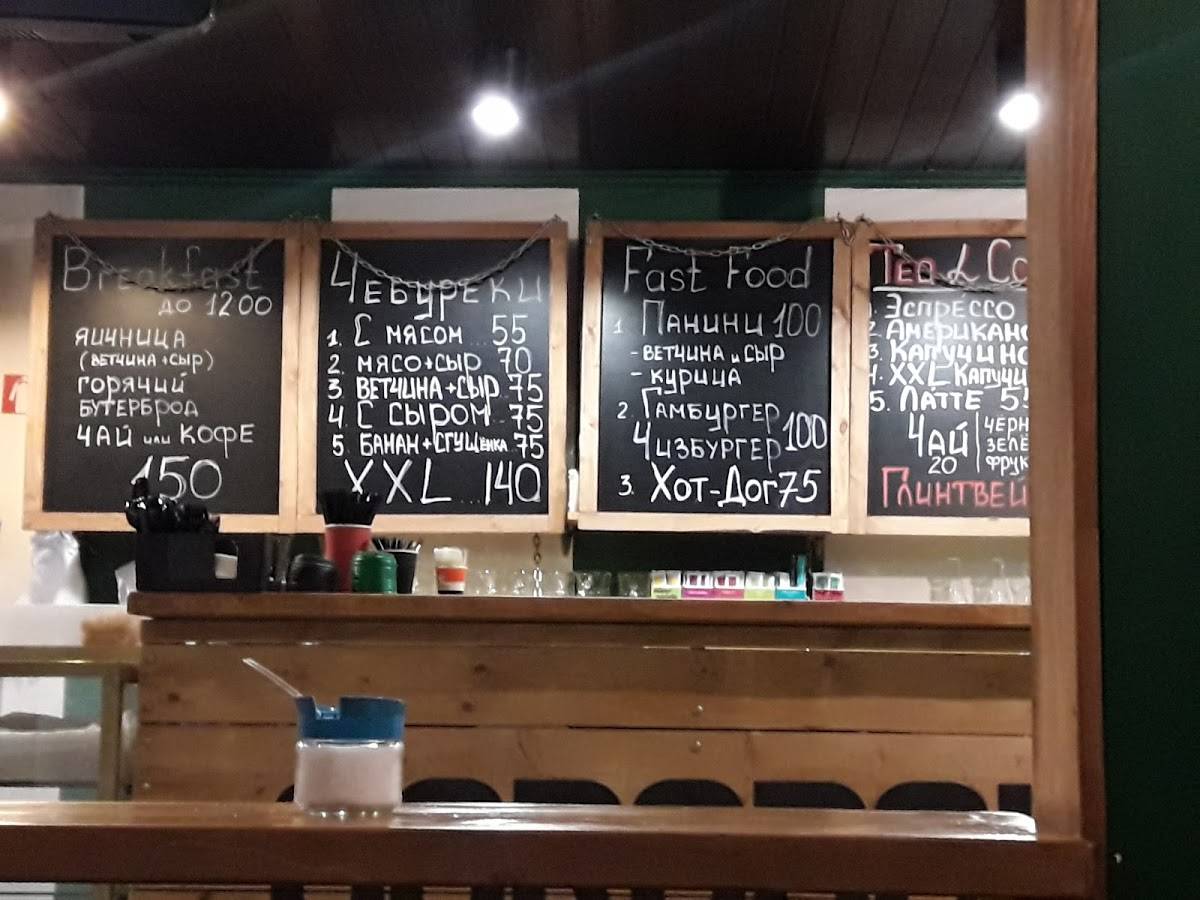 Breakfast
до 12 00
яичница
(ветчина + сыр)
горячий
бутерброд
чай или кофе
150
Чебуреки
1. С мясом... 55
2. мясо+сыр 70
3 ветчина+сыр 75
4 С сыром.. 75
5. Банан+сгущёнка.. 75
XXL... 140
Fast Food
1 Панини 100
- ветчина и сыр
- курица
2. Гамбургер
Чизбургер 100
3. Хот-Дог 75
Tea & Co
Эспрессо
2 Американо
3. Капучино
4. XXL Капучи
5. Латте 55
Чай
20
чёрн
зелё
фрук
Глинтвей